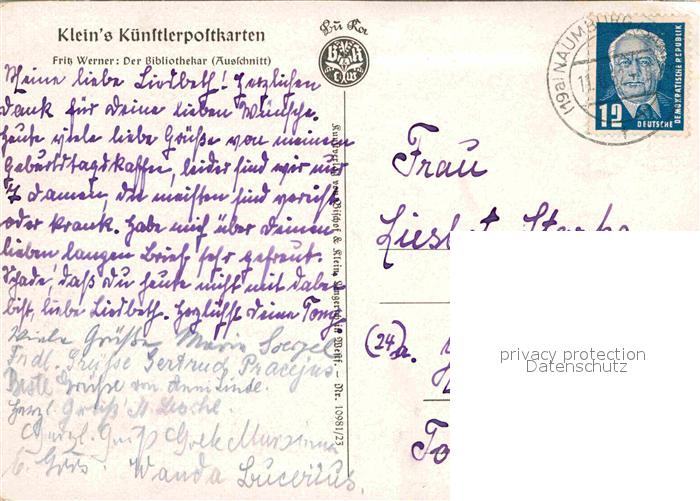 Klein's Künstlerpostkarten
Fritz Werner: Der Bibliothekar (Ausschnitt)
Meine liebe Liesbeth! Herzlichen
Dank für Deine lieben Wünsche.
Heute viele liebe Grüße von meinem
Geburtstagskaffee, leider sind wir nur
7 Damen, die meisten sind verreist
oder krank. Habe mich über Deinen
lieben langen Brief sehr gefreut.
Schade, daß Du heute nicht mit dabei
bist, liebe Liesbeth. Herzlichst Deine Tony
Viele Grüße Maria
Frdl. Grüsse Gertrud Pracejus
Beste Grüsse von Anni Linde.
Herzl. Gruß M.
Herzl. Gruß Grete
Wanda Lucerius.
Kunstverlag von Bischof & Klein, Lengerich in Westf. - Nr. 10981/23
(19a) NAUMBURG
11
12
DEUTSCHE
DEMOKRATISCHE REPUBLIK
Frau
(24a.
privacy protection
Datenschutz